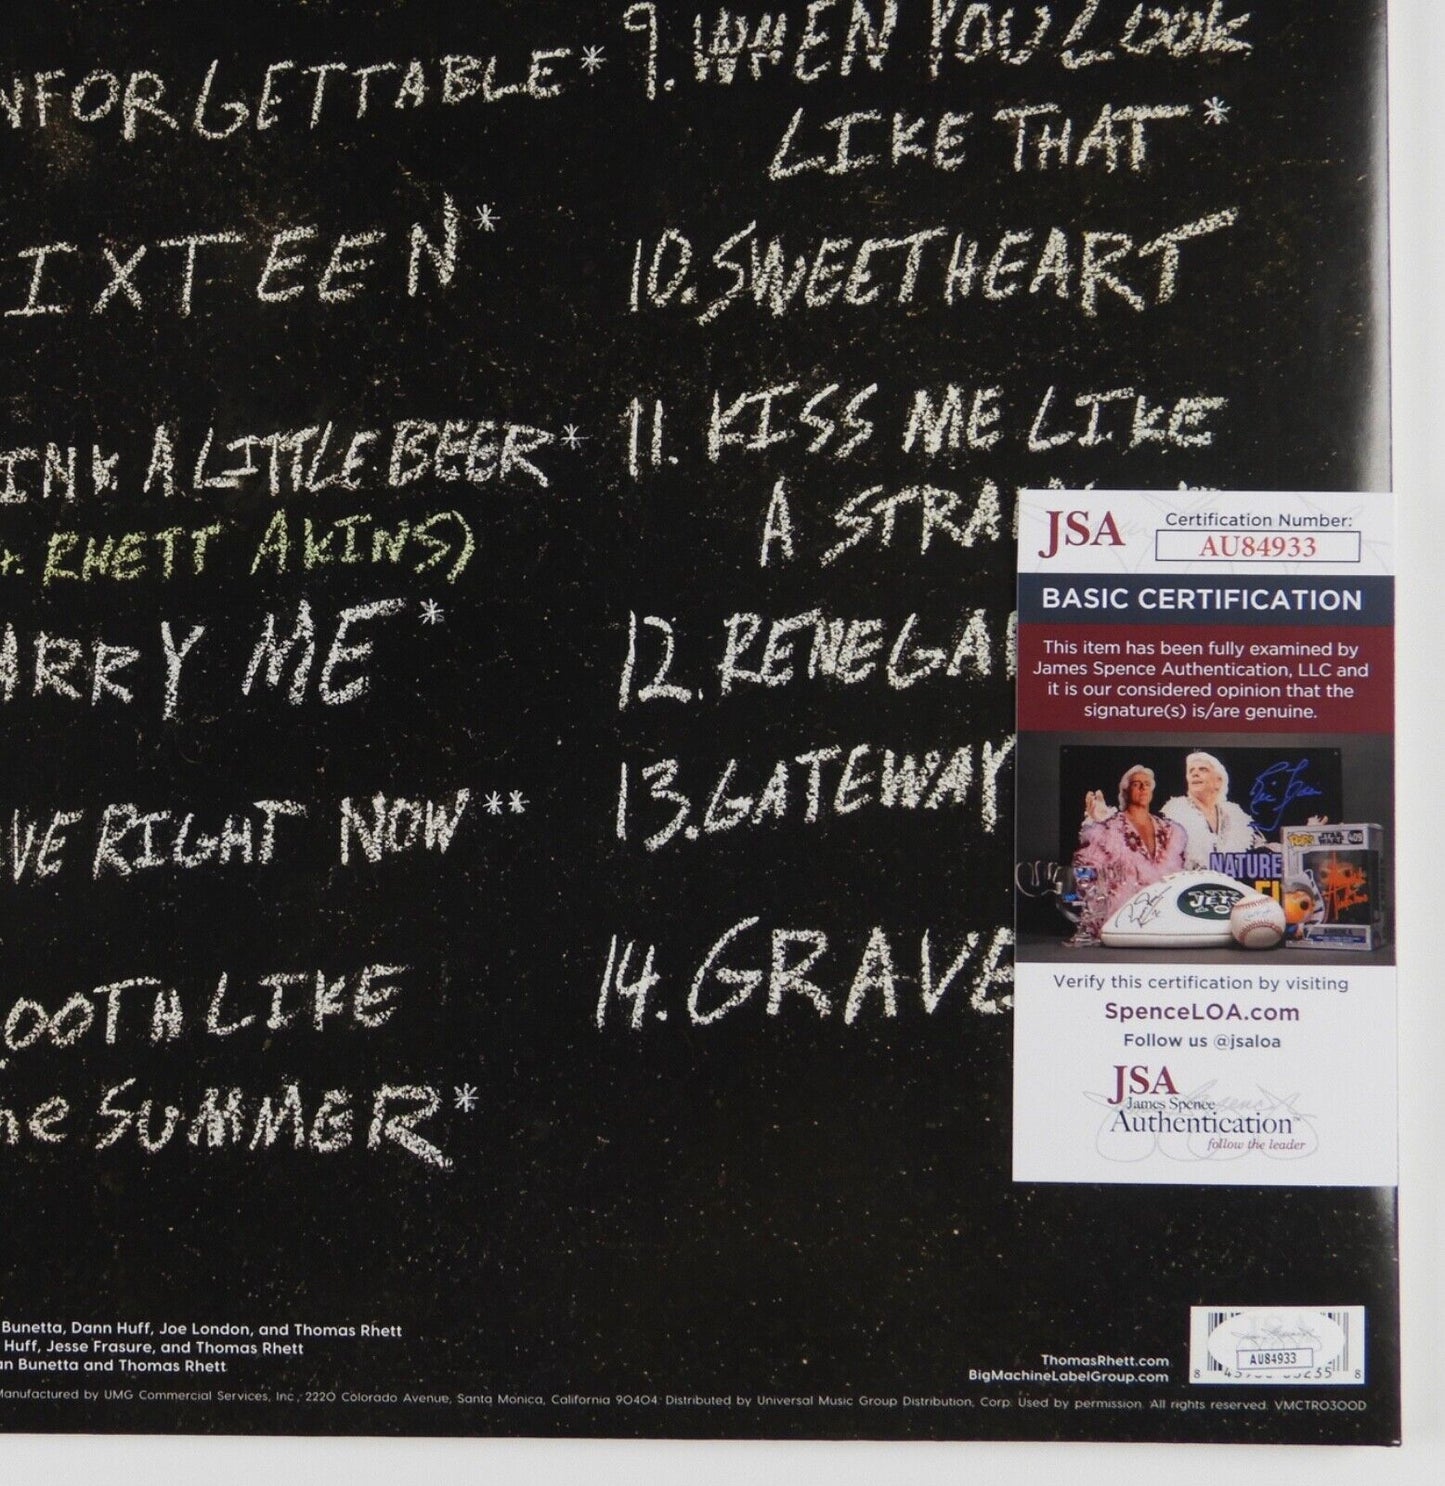 NFORGETTABLE*
IXTEEN*
INK A LITTLE BEER*
RHETT AKINS)
ARRY ME*
VE RIGHT NOW**
OOTH LIKE
he SUMMER*
9. WHEN YOU LOOK
LIKE THAT*
10. SWEETHEART
11. KISS ME LIKE
A STRA
12. RENEGA
13. GATEWAY
14. GRAVE
JSA
Certification Number:
AU84933
BASIC CERTIFICATION
This item has been fully examined by
James Spence Authentication, LLC and
it is our considered opinion that the
signature(s) is/are genuine.
NATURE
JETS
Verify this certification by visiting
SpenceLOA.com
Follow us @jsaloa
JSA
James Spence
Authentication™
follow the leader
Bunetta, Dann Huff, Joe London, and Thomas Rhett
Huff, Jesse Frasure, and Thomas Rhett
an Bunetta and Thomas Rhett
ThomasRhett.com
BigMachineLabelGroup.com
AU84933
Manufactured by UMG Commercial Services, Inc., 2220 Colorado Avenue, Santa Monica, California 90404. Distributed by Universal Music Group Distribution, Corp. Used by permission. All rights reserved. VMCTR0300D